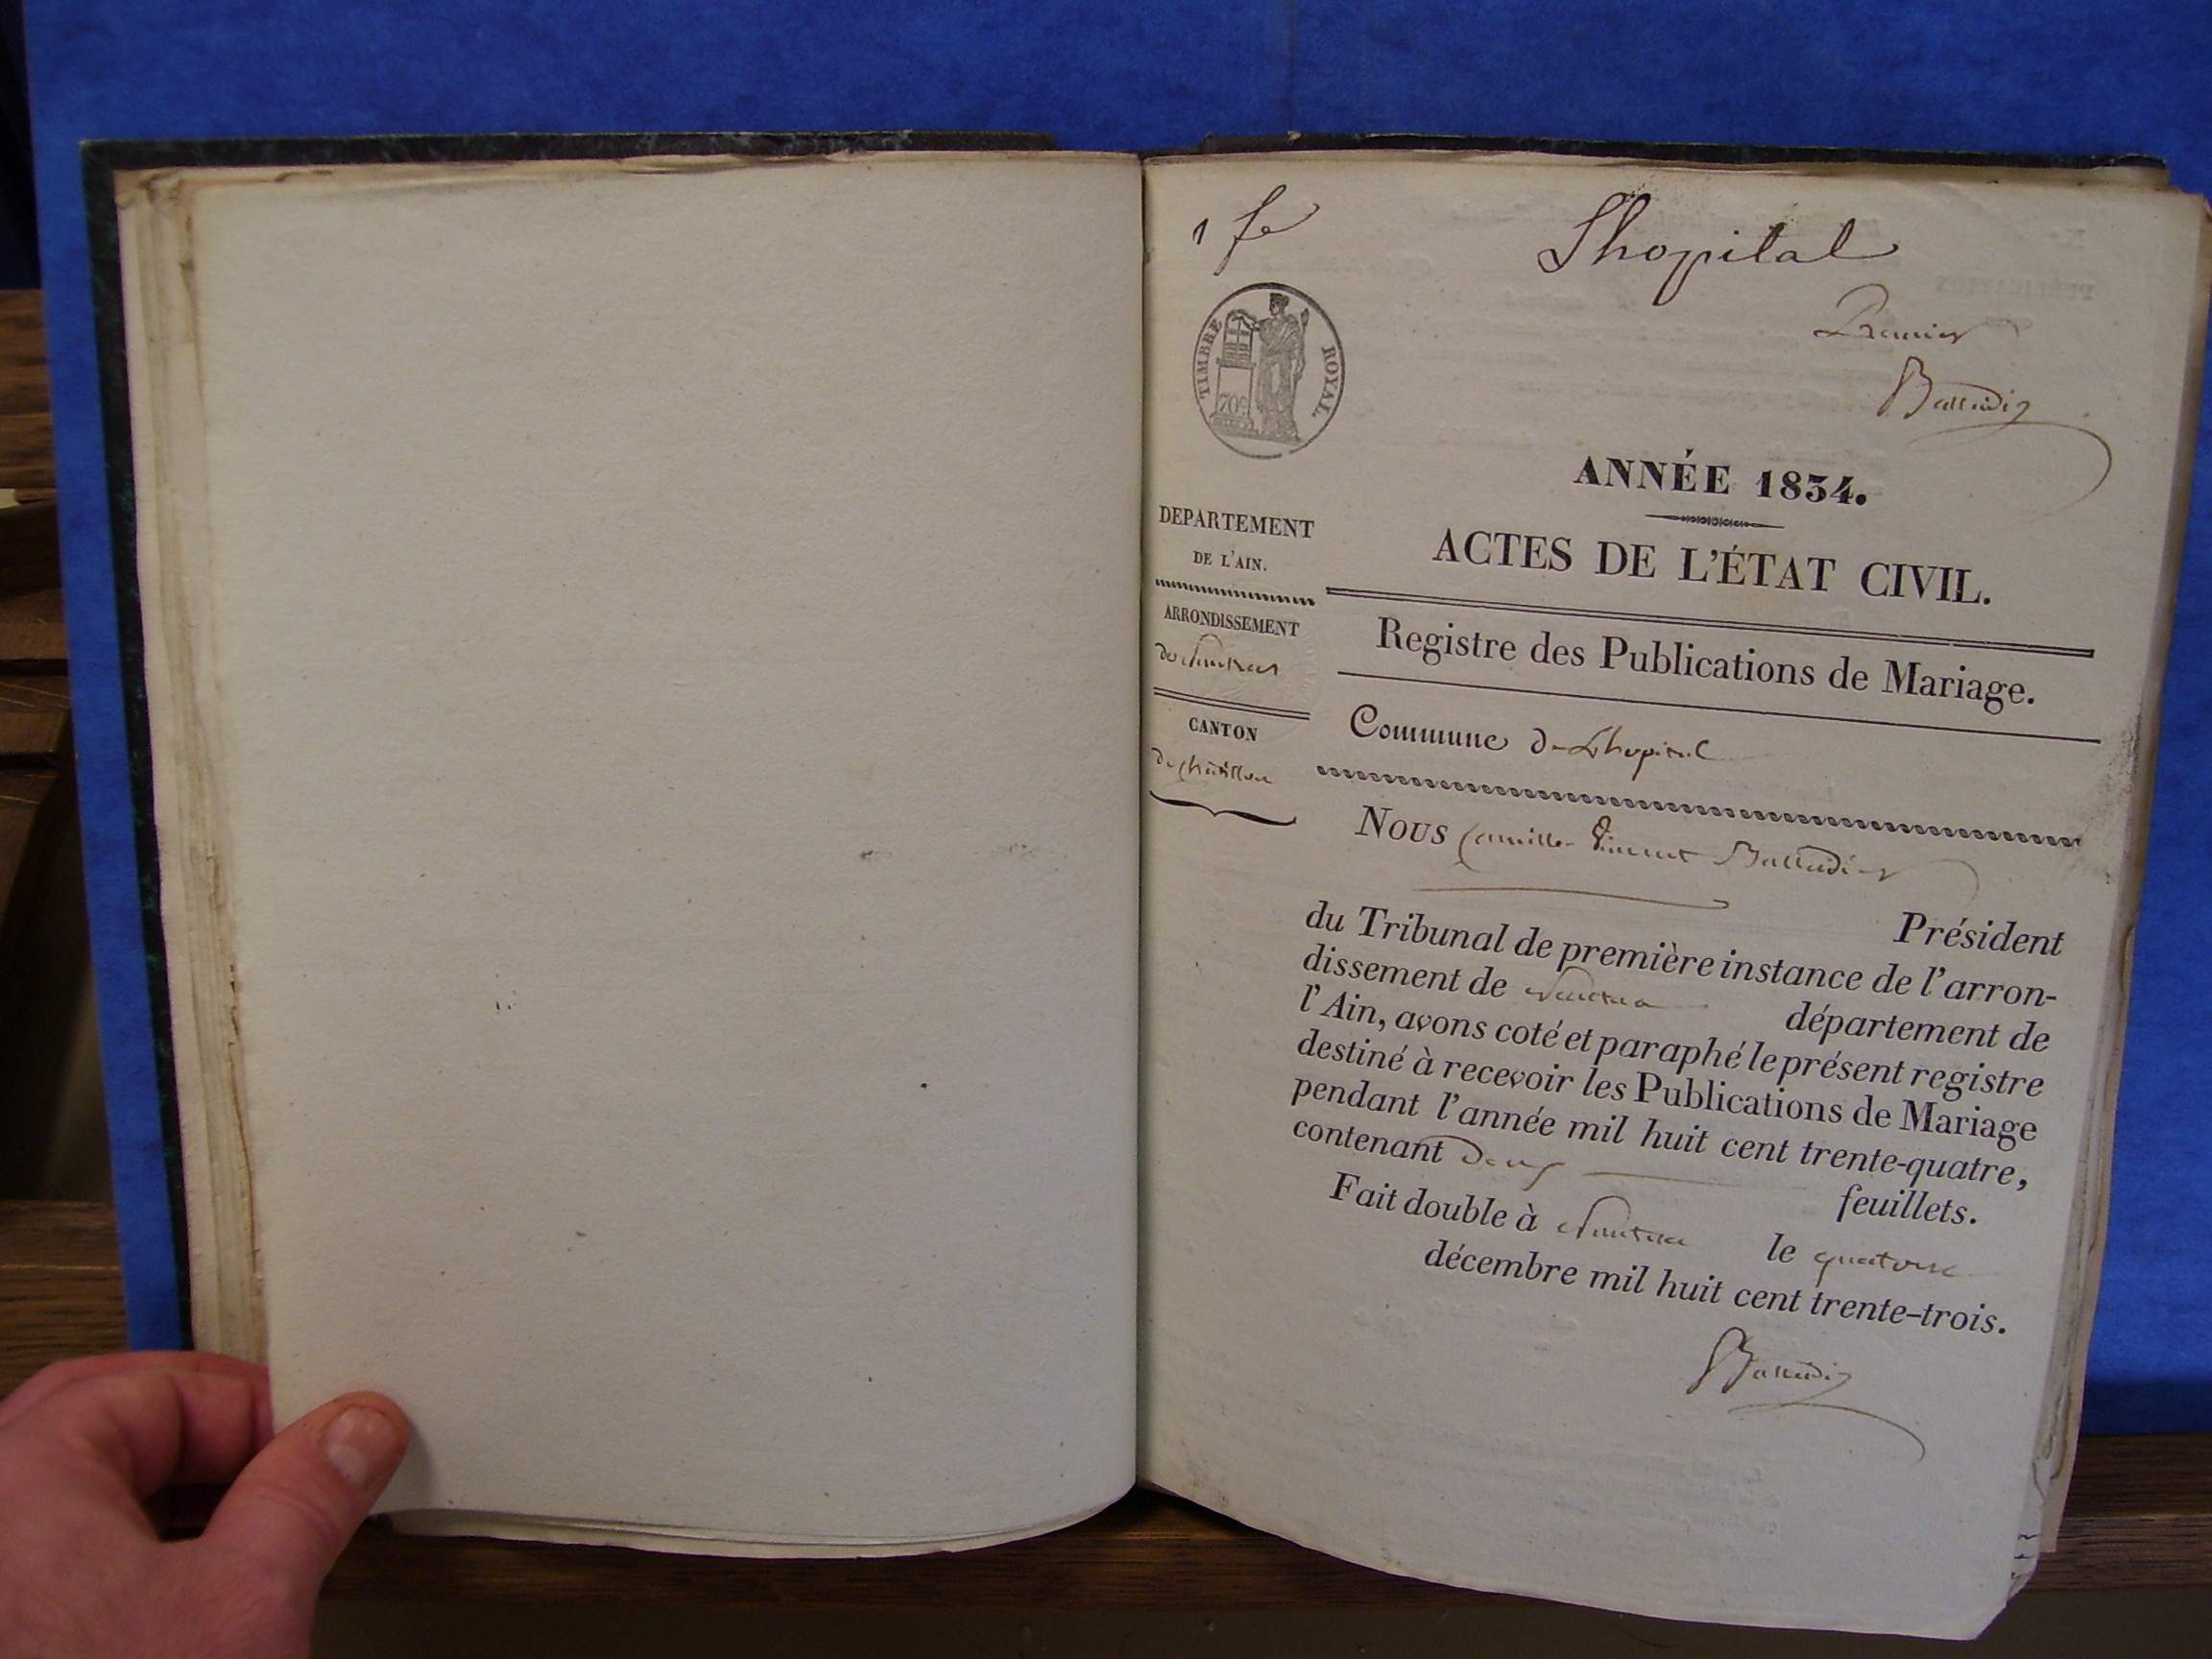 1 fe
Lhopital
Premier
Balleidier
TIMBRE ROYAL.
70c
ANNÉE 1834.
DEPARTEMENT
DE L'AIN.
ACTES DE L'ÉTAT CIVIL.
ARRONDISSEMENT
de Nantua
Registre des Publications de Mariage.
CANTON
de châtillon
Commune de Lhopital
Nous Camille Vincent Balleidier
Président
du Tribunal de première instance de l'arron-
dissement de Nantua département de
l'Ain, avons coté et paraphé le présent registre
destiné à recevoir les Publications de Mariage
pendant l'année mil huit cent trente-quatre,
contenant deux feuillets.
Fait double à Nantua le quatorze
décembre mil huit cent trente-trois.
Balleidier